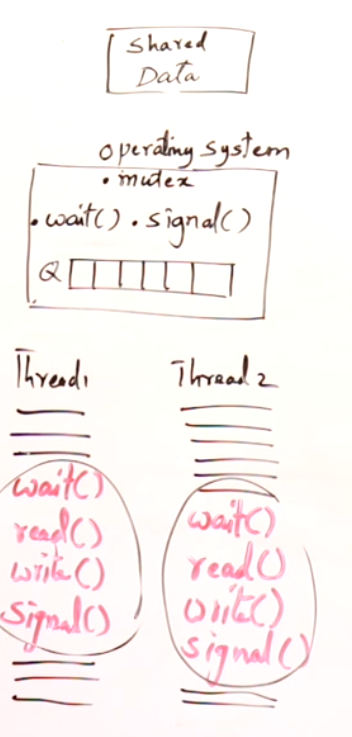 Shared
Data
operating system
• mutex
• wait() • signal()
Q
Thread1
wait()
read()
write()
signal()
Thread 2
wait()
read()
write()
signal()